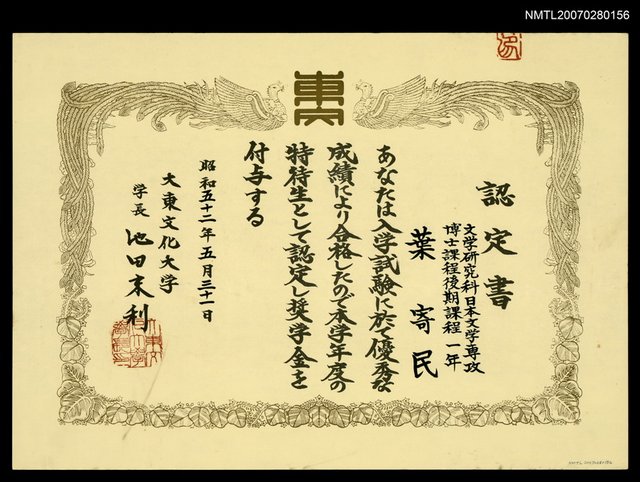 NMTL20070280156
認定書
文学研究科日本文学専攻
博士課程後期課程 一年
葉寄民
あなたは入学試験に於て優秀な
成績により合格したので本学年度の
特待生として認定し奨学金を
付与する
昭和五十二年五月三十一日
大東文化大学
学長 池田末利